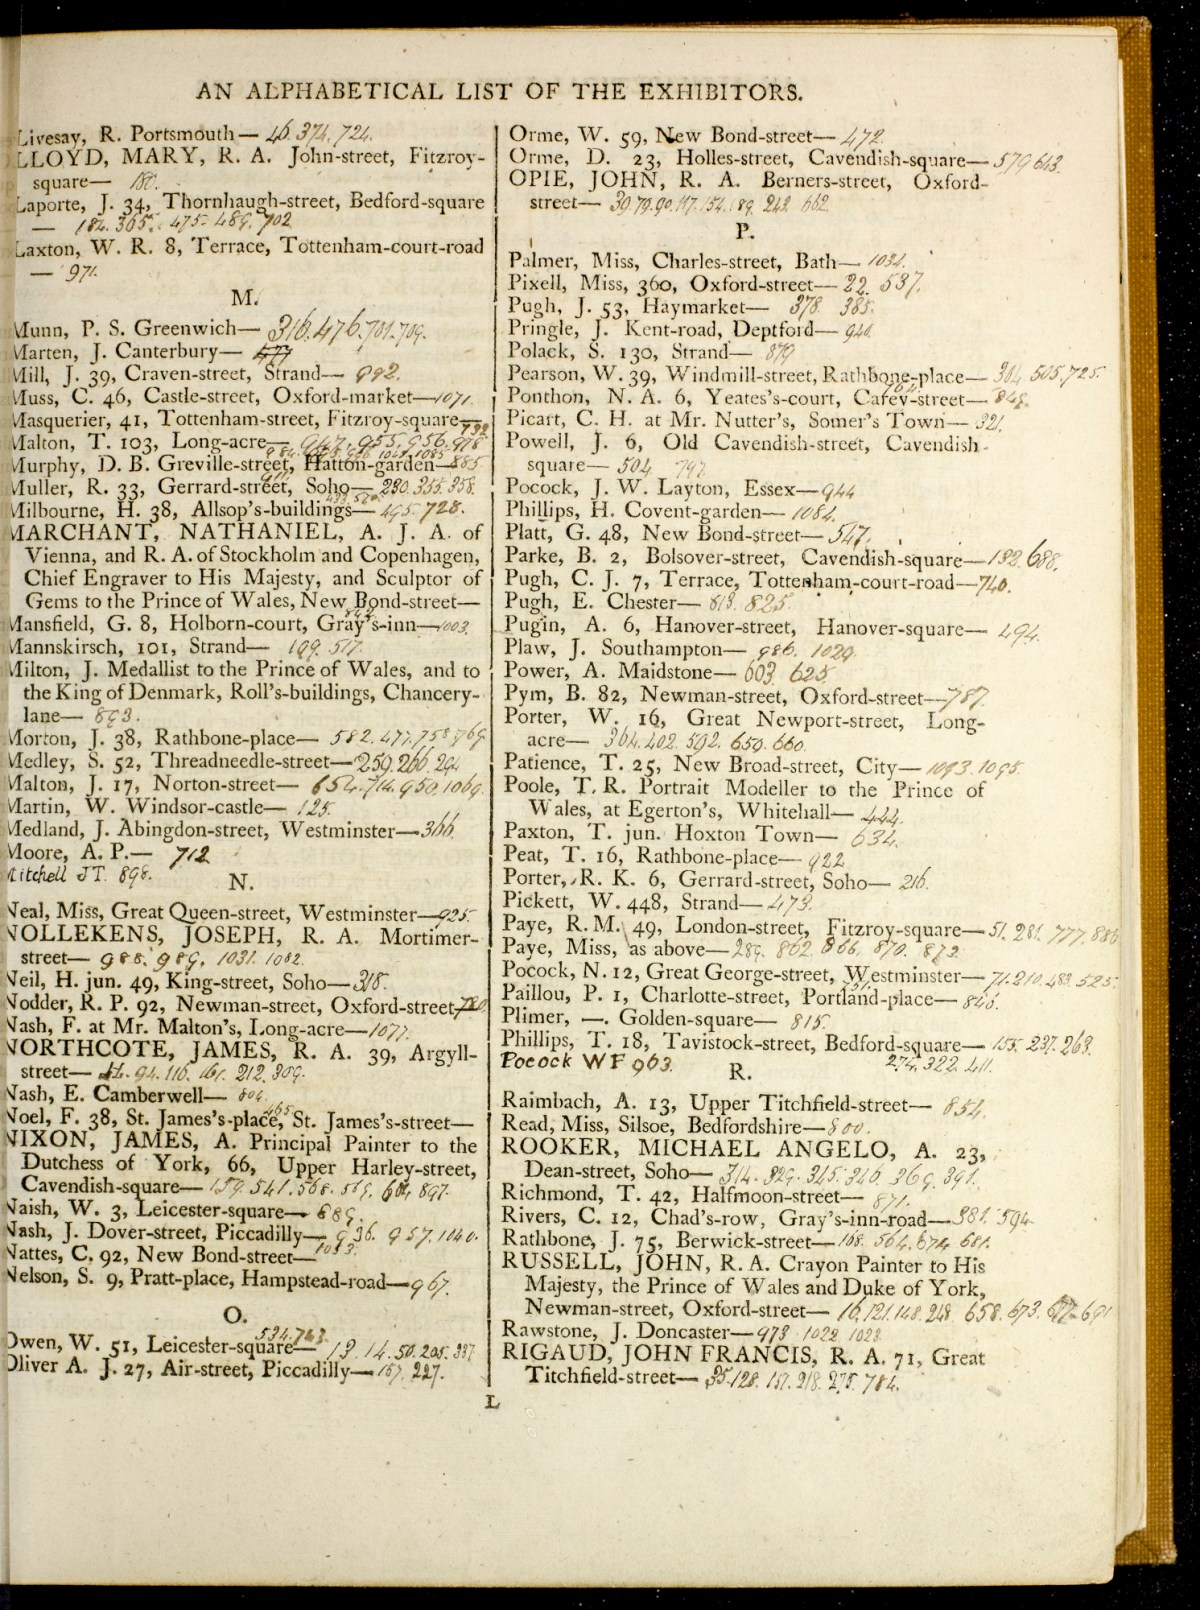 AN ALPHABETICAL LIST OF THE EXHIBITORS.
Livesay, R. Portsmouth— 46. 374. 724.
LLOYD, MARY, R. A. John-street, Fitzroy-
square— 180.
Laporte, J. 34, Thornhaugh-street, Bedford-square
— 184. 365. 475. 489. 702
Laxton, W. R. 8, Terrace, Tottenham-court-road
— 971.
M.
Munn, P. S. Greenwich— 316. 476. 701. 709.
Marten, J. Canterbury— 477
Mill, J. 39, Craven-street, Strand— 992.
Muss, C. 46, Castle-street, Oxford-market—1071.
Masquerier, 41, Tottenham-street, Fitzroy-square—
732
Malton, T. 103, Long-acre— 947. 955. 956. 978
Murphy, D. B. Greville-street, Hatton-garden—885
Muller, R. 33, Gerrard-street, Soho— 230. 355. 358.
Milbourne, H. 38, Allsop's-buildings— 495. 728.
MARCHANT, NATHANIEL, A. J. A. of
Vienna, and R. A. of Stockholm and Copenhagen,
Chief Engraver to His Majesty, and Sculptor of
Gems to the Prince of Wales, New Bond-street—
Mansfield, G. 8, Holborn-court, Gray's-inn—1003.
Mannskirsch, 101, Strand— 199. 517.
Milton, J. Medallist to the Prince of Wales, and to
the King of Denmark, Roll's-buildings, Chancery-
lane— 893.
Morton, J. 38, Rathbone-place— 582. 477. 758. 769
Medley, S. 52, Threadneedle-street—259. 266. 294
Malton, J. 17, Norton-street— 654. 714. 950. 1069.
Martin, W. Windsor-castle— 125.
Medland, J. Abingdon-street, Westminster—366.
Moore, A. P.— 712
Mitchell J T. 898.
N.
Neal, Miss, Great Queen-street, Westminster—925.
NOLLEKENS, JOSEPH, R. A. Mortimer-
street— 988. 989. 1031. 1082.
Neil, H. jun. 49, King-street, Soho—318.
Nodder, R. P. 92, Newman-street, Oxford-street—780
Nash, F. at Mr. Malton's, Long-acre—1077.
NORTHCOTE, JAMES, R. A. 39, Argyll-
street— 94. 116. 161. 212. 309.
Nash, E. Camberwell— 804.
465
Noel, F. 38, St. James's-place, St. James's-street—
NIXON, JAMES, A. Principal Painter to the
Dutchess of York, 66, Upper Harley-street,
Cavendish-square— 159. 541. 568. 569. 604 897.
Naish, W. 3, Leicester-square— 889.
Nash, J. Dover-street, Piccadilly— 936. 957. 1040.
Nattes, C. 92, New Bond-street— 1053.
Nelson, S. 9, Pratt-place, Hampstead-road—967.
O.
534. 763
Owen, W. 51, Leicester-square— 13. 14. 50. 205. 337
Oliver A. J. 27, Air-street, Piccadilly—157. 227.
Orme, W. 59, New Bond-street— 472.
Orme, D. 23, Holles-street, Cavendish-square— 579 613.
OPIE, JOHN, R. A. Berners-street, Oxford-
street— 39. 79. 90. 117. 154. 189. 242. 662
P.
Palmer, Miss, Charles-street, Bath— 1034.
Pixell, Miss, 360, Oxford-street— 22. 537.
Pugh, J. 53, Haymarket— 378. 385.
Pringle, J. Kent-road, Deptford— 940.
Polack, S. 130, Strand— 879
Pearson, W. 39, Windmill-street, Rathbone-place— 304 505. 725
Ponthon, N. A. 6, Yeates's-court, Carey-street— 849.
Picart, C. H. at Mr. Nutter's, Somer's Town— 321.
Powell, J. 6, Old Cavendish-street, Cavendish-
square— 504 797.
Pocock, J. W. Layton, Essex—944
Phillips, H. Covent-garden— 1084.
Platt, G. 48, New Bond-street— 547.
Parke, B. 2, Bolsover-street, Cavendish-square—132. 688.
Pugh, C. J. 7, Terrace, Tottenham-court-road—740.
Pugh, E. Chester— 813. 825.
Pugin, A. 6, Hanover-street, Hanover-square— 494.
Plaw, J. Southampton— 986. 1029.
Power, A. Maidstone— 603 625
Pym, B. 82, Newman-street, Oxford-street—787.
Porter, W. 16, Great Newport-street, Long-
acre— 364. 402. 592. 650. 660.
Patience, T. 25, New Broad-street, City— 1093. 1095.
Poole, T. R. Portrait Modeller to the Prince of
Wales, at Egerton's, Whitehall— 444.
Paxton, T. jun. Hoxton Town— 634.
Peat, T. 16, Rathbone-place— 922
Porter, R. K. 6, Gerrard-street, Soho— 216.
Pickett, W. 448, Strand— 473.
Paye, R. M. 49, London-street, Fitzroy-square— 51. 281. 777. 886
Paye, Miss, as above— 289. 862. 866. 870. 873.
Pocock, N. 12, Great George-street, Westminster— 71. 210. 483. 525.
Paillou, P. 1, Charlotte-street, Portland-place— 846.
Plimer, —. Golden-square— 815.
Phillips, T. 18, Tavistock-street, Bedford-square— 155. 237. 263.
274. 322. 411.
Pocock W F 963.
R.
Raimbach, A. 13, Upper Titchfield-street— 854.
Read, Miss, Silsoe, Bedfordshire—800.
ROOKER, MICHAEL ANGELO, A. 23,
Dean-street, Soho— 314. 329. 345. 346. 369. 391.
Richmond, T. 42, Halfmoon-street— 871.
Rivers, C. 12, Chad's-row, Gray's-inn-road—381. 594
Rathbone, J. 75, Berwick-street—168. 564. 674 681.
RUSSELL, JOHN, R. A. Crayon Painter to His
Majesty, the Prince of Wales and Duke of York,
Newman-street, Oxford-street— 16. 121. 148. 248. 658. 673. 677. 691
Rawstone, J. Doncaster—973. 1022. 1023.
RIGAUD, JOHN FRANCIS, R. A. 71, Great
Titchfield-street— 35. 128. 151. 218. 275. 784.
L